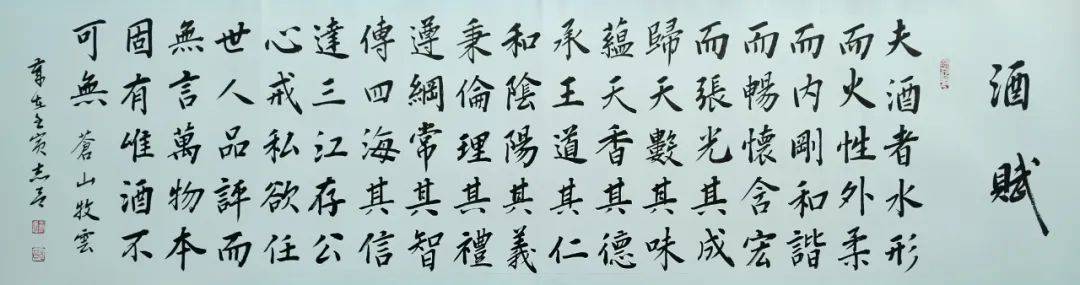 酒賦
夫酒者水形
而火性外柔
而内剛和諧
而暢懷含宏
而張光其成
歸天數其味
蘊天香其德
承王道其仁
和陰陽其義
秉倫理其禮
遵綱常其智
傳四海其信
達三江存公
心戒私欲任
世人品評而
無言萬物本
固有唯酒不
可無 蒼山牧雲
在壬寅志